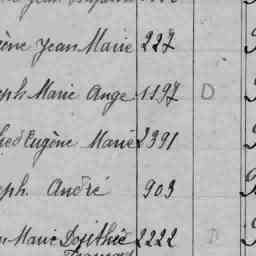 ène Jean Marie 227
eph Marie Ange 1197 D
Eugène Marie 2391
eph André 903
Marie Dosithée 2222 D
François